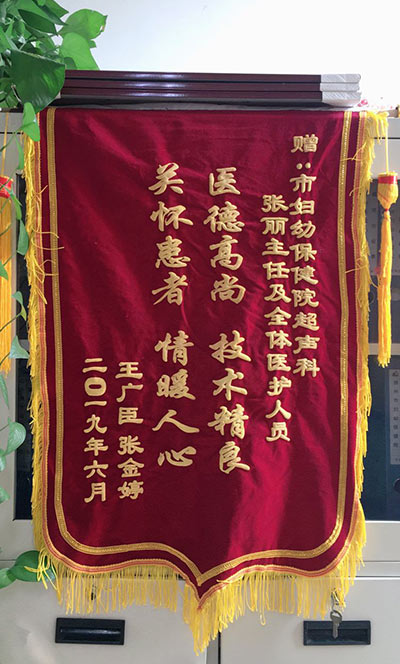 赠:市妇幼保健院超声科
张丽主任及全体医护人员
医德高尚 技术精良
关怀患者 情暖人心
王广臣 张金婷
二〇一九年六月